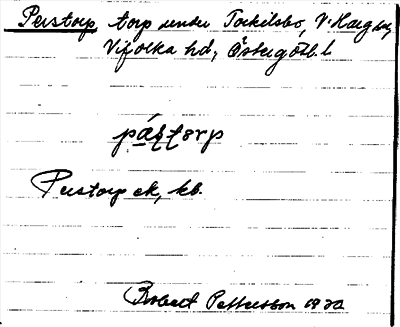 Perstorp, torp under Torkilsbo, V. Harg sn,
Vifolka hd, Östergötl. l
pásto̧rp
Perstorp ek, kb.
Robert Pettersson 1932